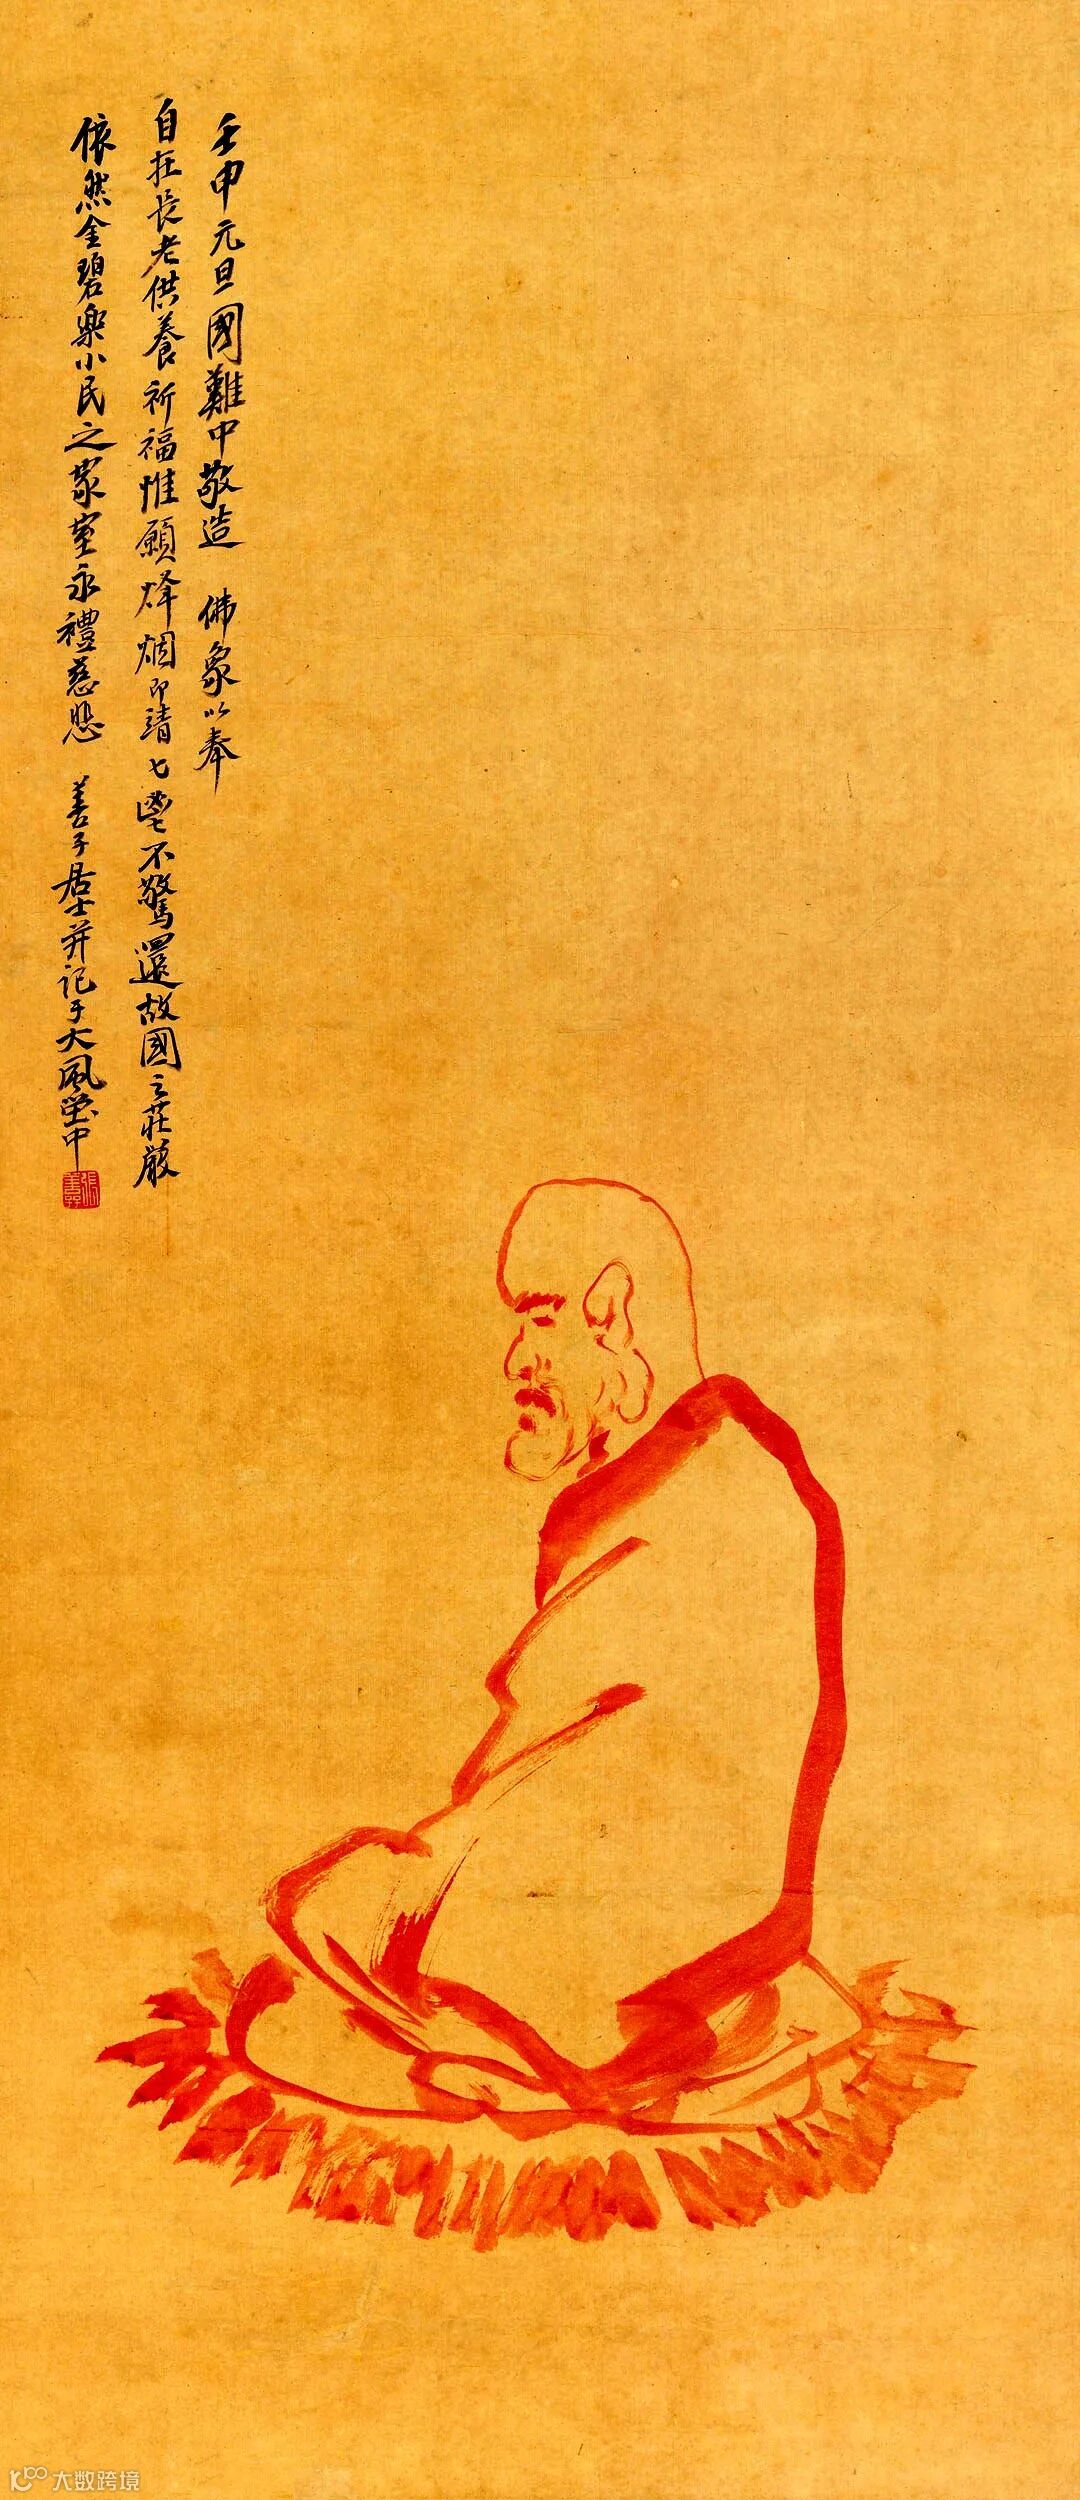 壬申元旦國難中敬造 佛象以奉
自在長老供養祈福惟願烽烟即靖匕鬯不驚還故國之莊嚴
依然金碧樂小民之家室永禮慈悲 善子居士并记于大風堂中
張善孖
大数跨境